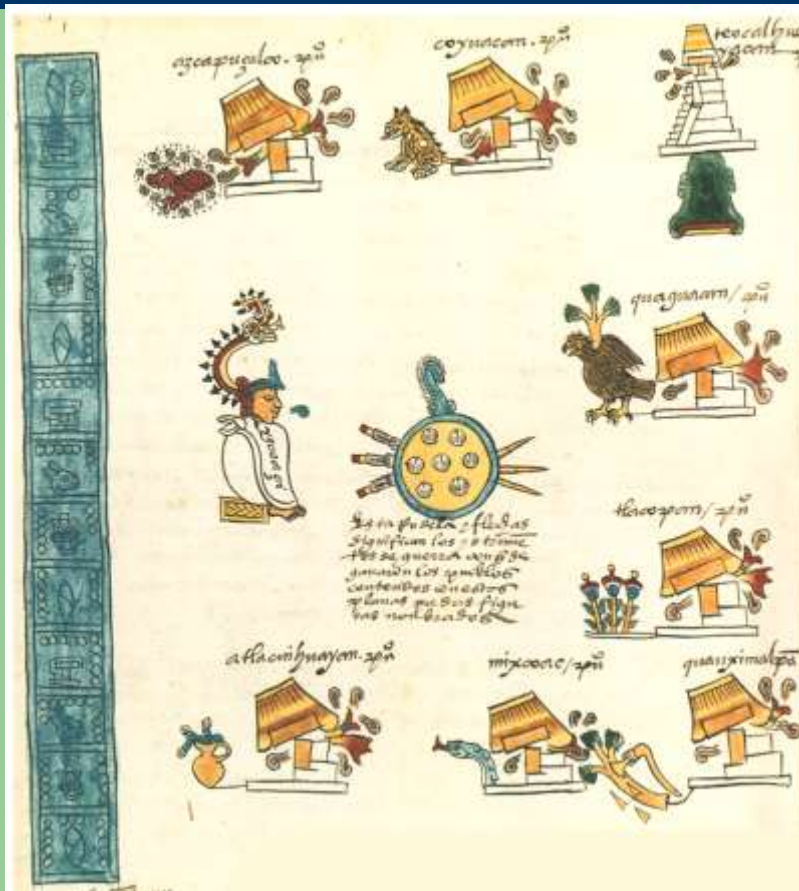 azcapuçalco. puº
coyuacan. puº
teocalhue
yacan
quaguacan / puº
yzcoaçi
Esta rodela y flechas
significan los
de guerra con q se
ganaron los pueblos
contenidos en estas
planas por sus figu
ras nonbrados
tlacopan / puº
atlacuihuayan. puº
mixcoac / puº
quauximalpā